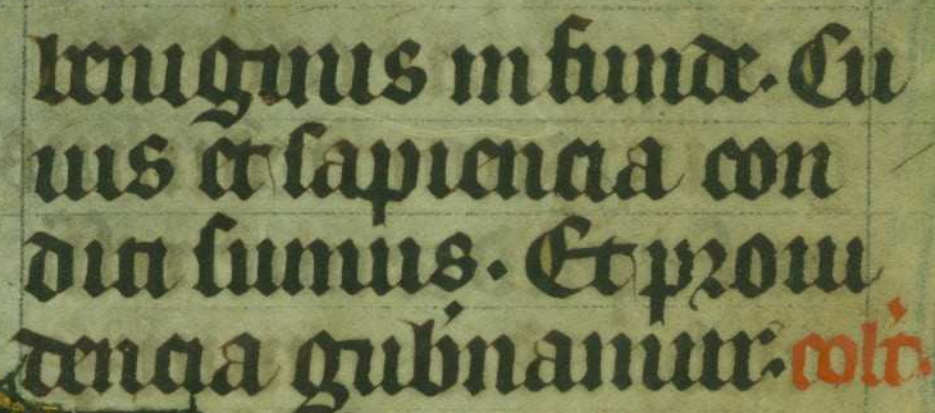 benignius infunde. Cu
ius et sapiencia con
diti sumus. Et proui
dencia gub'namur. coll'c.